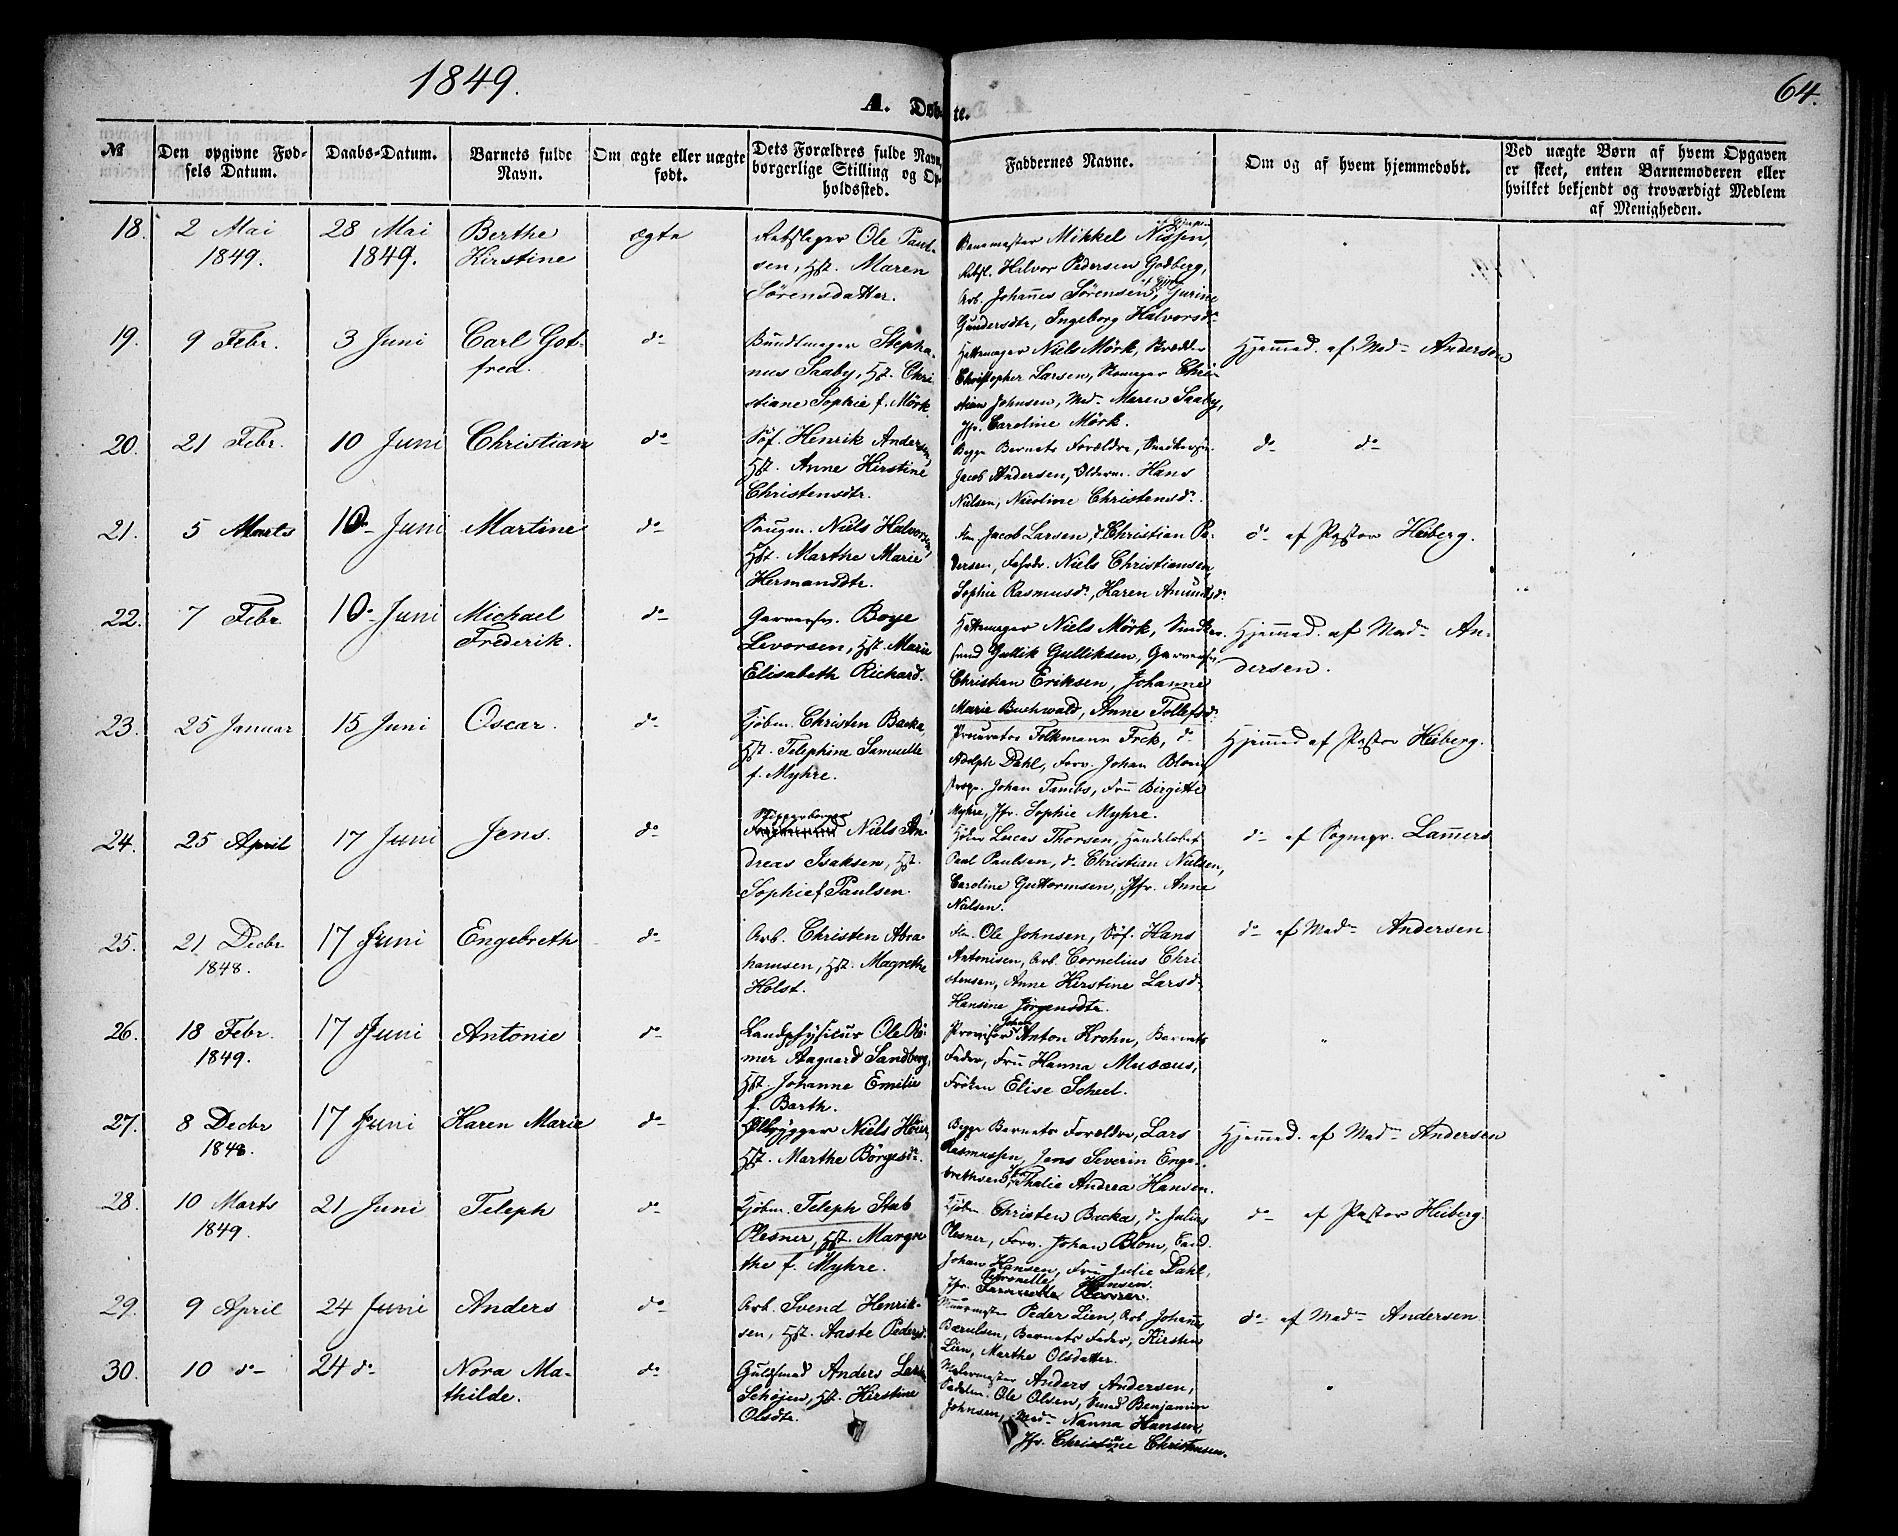 1849.
64.
A. Døbte.
№
Den opgivne Fød-
sels Datum.
Daabs-Datum.
Barnets fulde
Navn.
Om ægte eller uægte
født.
Dets Forældres fulde Navn,
borgerlige Stilling og Op-
holdssted.
Faddernes Navne.
Om og af hvem hjemmedøbt.
Ved uægte Børn af hvem Opgaven
er skeet, enten Barnemoderen eller
hvilket bekjendt og troværdigt Medlem
af Menigheden.
18.
2 Mai
1849.
28 Mai
1849.
Berthe
Kirstine
ægte
Rebslager Ole Paul-
sen, Hst. Maren
Sörensdatter.
Mikkel Nissen
Rebsl. Halvor Pedersen Godberg,
Arb. Johannes Sörensen, Gurine
Gundersdtr, Ingeborg Halvorsdr
19.
9 Febr.
3 Juni
Carl Got-
fred.
do
Bundtmager Stepha-
nus Saaby, Hst. Chri
stiane Sophie f. Mörk.
Hattemager Niels Mörk, Skrædder
Christopher Larsen, Skomager Chri-
stian Johnsen, Mad. Maren Saaby,
Jfr. Caroline Mörk.
Hjemmed. af Mad. Andersen
20.
21 Febr.
10 Juni
Christian
do
Söf. Henrik Andersen,
Hst. Anne Kirstine
Christensdtr.
Begge Barnets Forældre,
Jacob Andersen, Olderm. Hans
Nielsen, Nicoline Christensdr.
do do
21.
5 Marts
10 Juni
Martine
do
Saugm. Niels Halvorsen,
Hst. Marthe Marie
Hermansdtr.
Jacob Larsen, do Christian Pe-
dersen, Niels Christiansen,
Sophie Rasmusdr, Karen Amundsdr
do af Pastor Heiberg.
22.
7 Febr.
10 Juni
Michael
Frederik.
do
Garversv. Boye
Levorsen, Hst. Marie
Elisabeth Richard.
Hattemager Niels Mörk, Snedker-
svend Gullik Gulliksen, Garversv.
Christian Eriksen, Johanne
Marie Buchwald, Anne Tollefsdr
Hjemmed. af Mad. An-
dersen.
23.
25 Januar
15 Juni
Oscar.
do
Kjöbm. Christen Backa,
Hst. Telephine Samuelle
f. Myhre.
Procurator Folkmann Frck, do
Adolph Dahl, Forv. Johan Blom,
Johan Tambs, Fru Birgitte
Myhre, Jfr. Sophie Myhre.
Hjemmed af Pastor Heiberg.
24.
25 April
17 Juni
Jens.
do
Niels An-
dreas Isaksen, Hst.
Sophie f. Paulsen.
Lucas Thorsen, Handelsbet.
Paul Paulsen, do Christian Nielsen,
Caroline Guttormsen, Jfr. Anne
Nielsen.
do af Sognepr. Lammers
25.
21 Decbr
1848.
17 Juni
Engebreth
do
Arb. Christen Abra-
hamsen, Hst. Magrethe
Holst.
Ole Johnsen, Söf. Hans
Antonisen, Arb. Cornelius Chri-
stensen, Anne Kirstine Larsd.
Hansine Jörgensdtr.
do af Mad. Andersen
26.
18 Febr.
1849.
17 Juni
Antonie
do
Landphysicus Ole Rö-
mer Aagaard Sandberg,
Hst. Johanne Emilie
f. Barth.
Johan
Provisor Anton Krohn, Barnets
Fader, Fru Hanna Musæus,
Fröken Elise Scheel.
27.
8 Decbr
1848.
17 Juni
Karen Marie
do
Ølbrygger Niels Höier,
Hst. Marthe Börgesdr.
Begge Barnets Forældre, Lars
Rasmussen, Jens Severin Enge-
brethsen, Thalia Andrea Hansen.
Hjemmed. af Mad. Andersen
28.
10 Marts
1849.
21 Juni
Teleph
do
Kjöbm. Teleph Stub
Plesner, Hst. Margre
the f. Myhre.
Kjöbm Christen Backa, do Julius
Plesner, Forv. Johan Blom, Cand.
Johan Hansen, Fru Julie Dahl,
Petronelle Hansen.
do af Pastor Heiberg.
29.
9 April
24 Juni
Anders
do
Arb. Svend Henrik-
sen, Hst. Aaste Pedersd.
Muurmester Peder Lien, Arb. Johannes
Bærulsen, Barnets Fader, Kirsten
Lien, Marthe Olsdatter.
do af Mad. Andersen
30.
10 do
24 do
Nora Ma-
thilde.
do
Guldsmed Anders
Schöjen, Hst. Kirstine
Olsdtr.
Malermester Anders Andersen,
Ole Olsen, Smed Benjamin
Johnsen, Mad. Nanna Hansen,
Jfr. Christine Christensen.